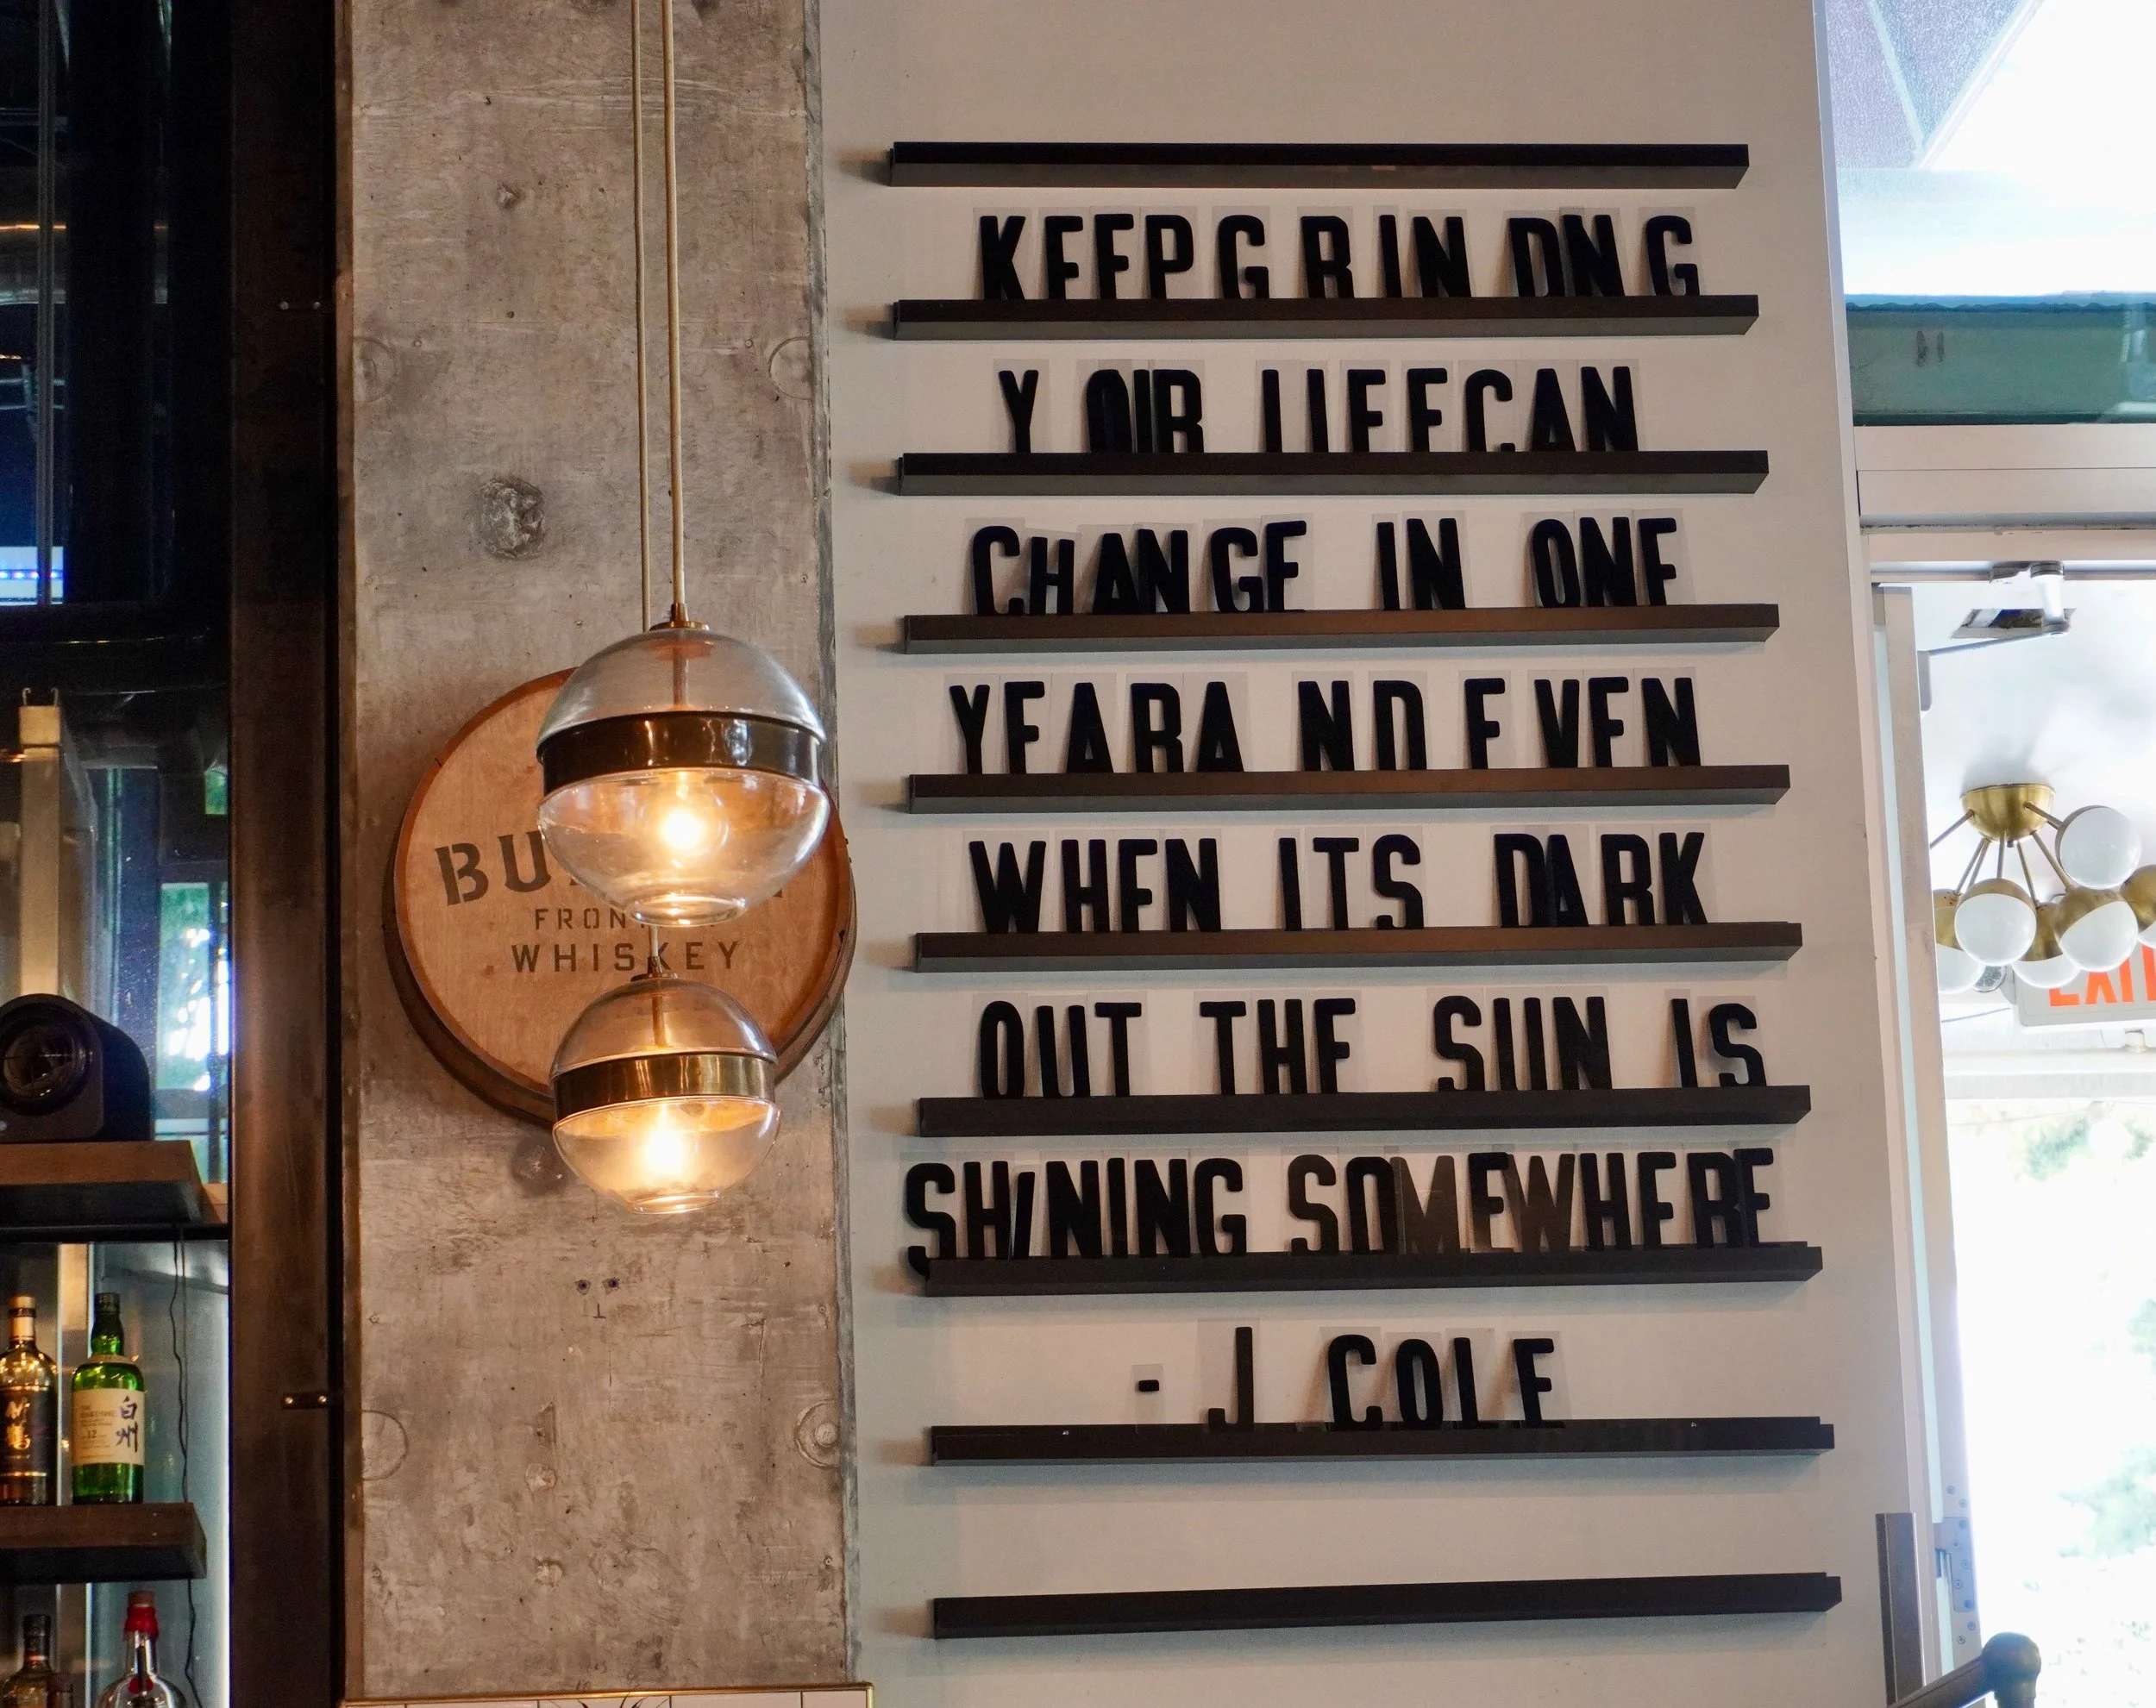 KEEP GRINDNG
YOUR LIFE CAN
CHANGE IN ONE
YEAR AND EVEN
WHEN ITS DARK
OUT THE SUN IS
SHINING SOMEWHERE
- J COLE
WHISKEY
EXIT
白州
12